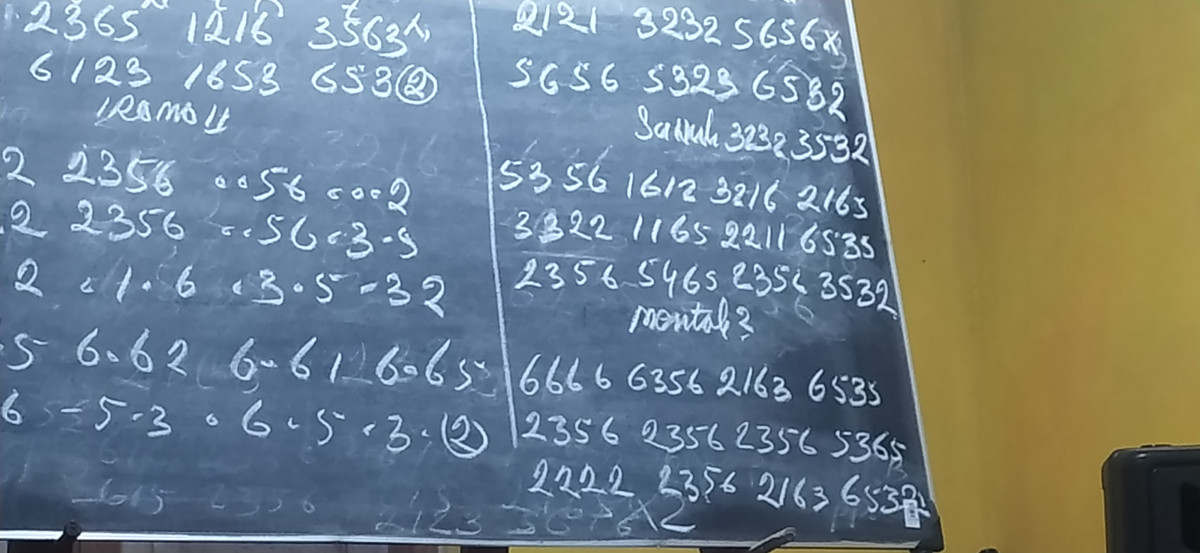 2365 1216 3563
6123 1653 653②
IRAMA II
2 2356 ..56 ...2
.2 2356 ..56 .3.5
2 .1.6 .3.5 .32
.5 6.62 6.61 6.65
6 .5.3 .6.5.3.②
2121 3232 5656
5656 5323 6532
3232 3532
5356 1612 3216 2165
3322 1165 2211 6535
2356 5465 2356 3532
6666 6356 2163 6535
2356 2356 2356 5365
2222 2356 2163
x2